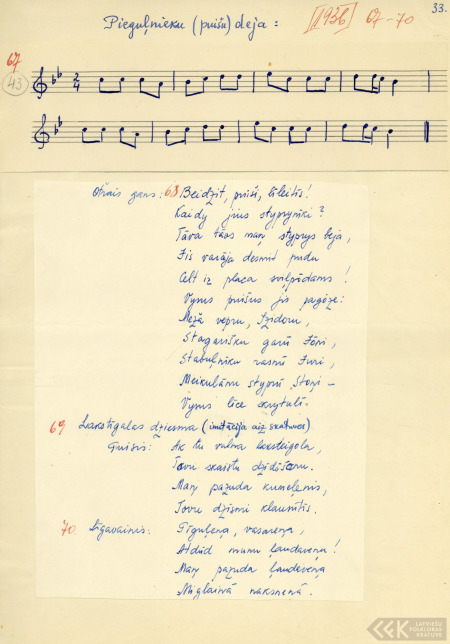 33.
Pieguļnieku (puišu) deja:
[1936] 67-70
67
43
2
4
Otrais gans: 68 Beidzit, puiši, lileitis!
Kaidy jius styprynīki?
Tāva tāvs maņ styprys beja,
Jis varāja desmit pudu
Celt iz placa svilpōdams!
Vysus puišus jis pagōze:
Meža vepru, Izidoru,
Stagarišku garū Jōni,
Stabuļnīku rasnū Juri,
Meikulānu styprū Stoņi -
Vysus līce skrytulī.
69 Lakstīgalas dziesma (imitācija aiz skatuves)
Puisis: Ak tu valna laksteigola,
Tovu skaistu dzīdōšonu.
Maņ pazuda kumeļenis,
Tovu dzīsmi klausūtis.
70. Līgavainis: Tīguļeņa, vasareņa,
Atdūd munu ļaudaveņu!
Maņ pazuda ļaudaveņa
Miglainā naksneņā.
LATVIEŠU
FOLKLORAS
KRĀTUVE